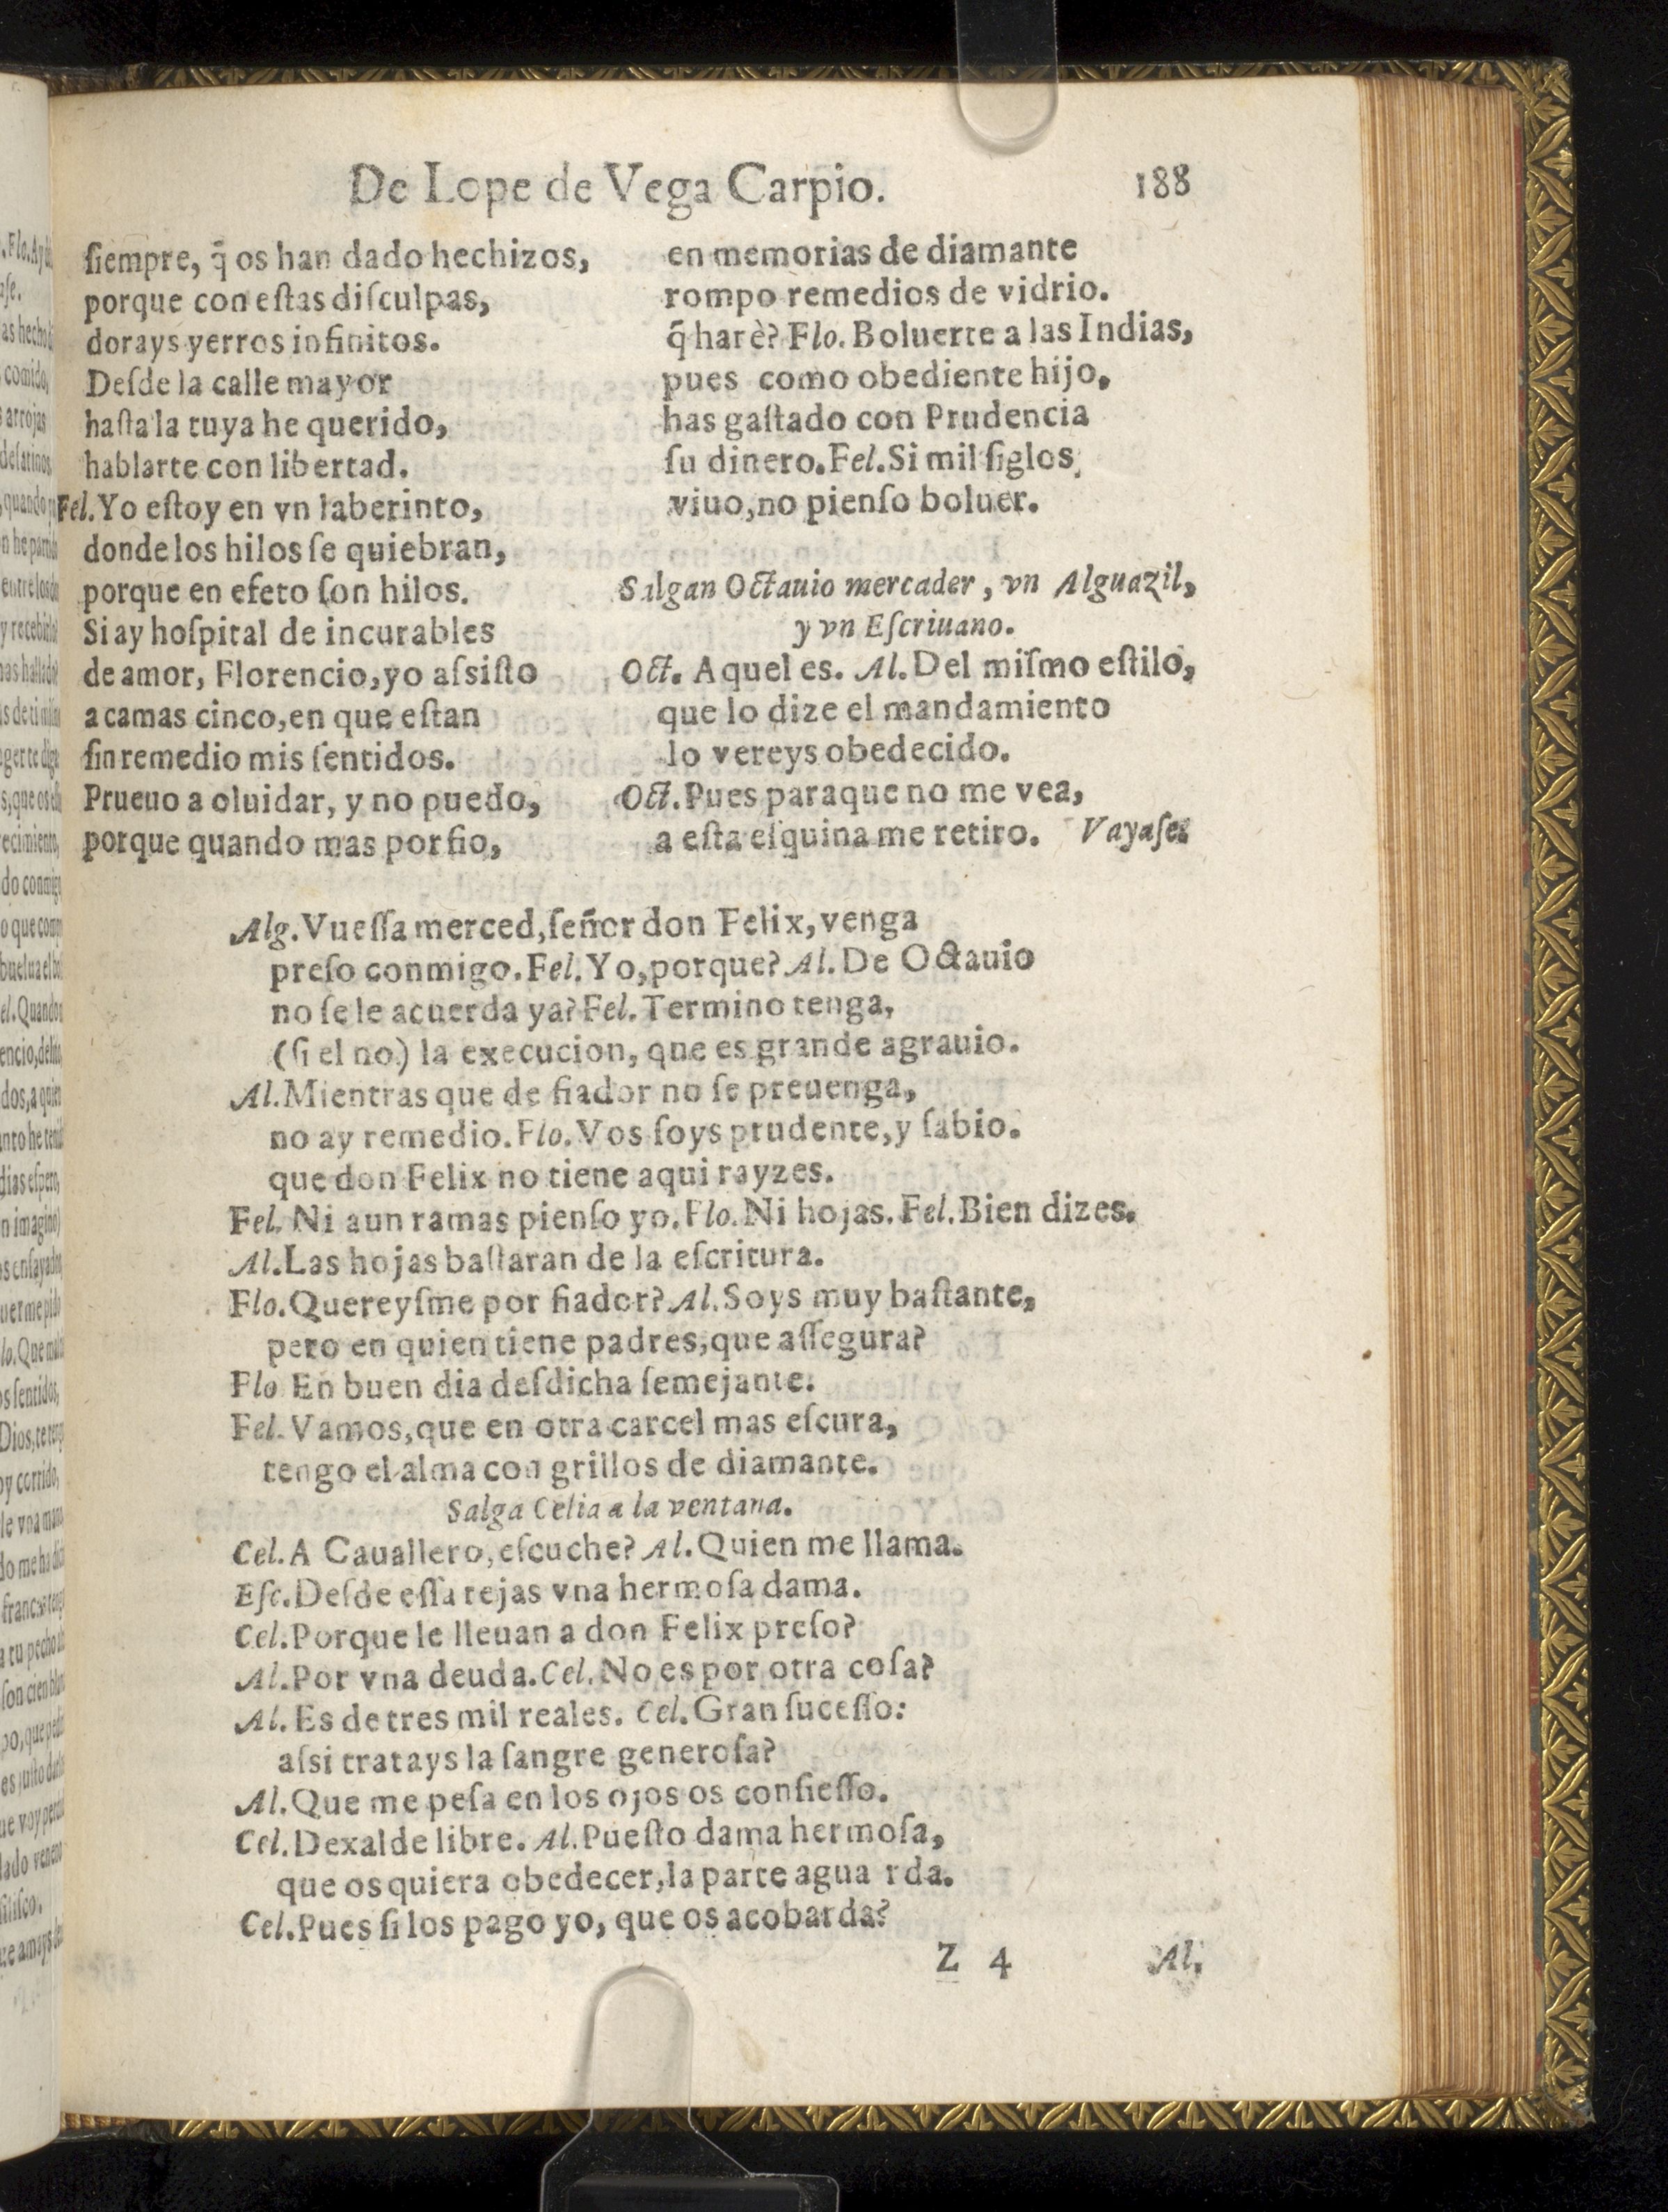 De Lope de Vega Carpio. 188
ſiempre, q̃ os han dado hechizos,
porque con eſtas diſculpas,
dorays yerros infinitos.
Deſde la calle mayor
haſta la tuya he querido,
hablarte con libertad.
Fel. Yo eſtoy en vn laberinto,
donde los hilos ſe quiebran,
porque en efeto ſon hilos.
Si ay hoſpital de incurables
de amor, Florencio, yo aſsiſto
a camas cinco, en que eſtan
ſin remedio mis ſentidos.
Prueuo a oluidar, y no puedo,
porque quando mas porfio,
en memorias de diamante
rompo remedios de vidrio.
q̃ harè? Flo. Boluerte a las Indias,
pues como obediente hijo,
has gaſtado con Prudencia
ſu dinero. Fel. Si mil ſiglos
viuo, no pienſo boluer.
Salgan Octauio mercader, vn Alguazil,
y vn Eſcriuano.
Oct. Aquel es. Al. Del miſmo eſtilo,
que lo dize el mandamiento
lo vereys obedecido.
Oct. Pues paraque no me vea,
a eſta eſquina me retiro. Vayaſe.
Alg. Vueſſa merced, ſeñor don Felix, venga
preſo conmigo. Fel. Yo, porque? Al. De Octauio
no ſe le acuerda ya? Fel. Termino tenga,
(ſi el no) la execucion, que es grande agrauio.
Al. Mientras que de fiador no ſe preuenga,
no ay remedio. Flo. Vos ſoys prudente, y ſabio.
que don Felix no tiene aqui rayzes.
Fel. Ni aun ramas pienſo yo. Flo. Ni hojas. Fel. Bien dizes.
Al. Las hojas baſtaran de la eſcritura.
Flo. Quereyſme por fiador? Al. Soys muy baſtante,
pero en quien tiene padres, que aſſegura?
Flo En buen dia deſdicha ſemejante.
Fel. Vamos, que en otra carcel mas eſcura,
tengo el alma con grillos de diamante.
Salga Celia a la ventana.
Cel. A Cauallero, eſcuche? Al. Quien me llama.
Eſc. Deſde eſſa rejas vna hermoſa dama.
Cel. Porque le lleuan a don Felix preſo?
Al. Por vna deuda. Cel. No es por otra coſa?
Al. Es de tres mil reales. Cel. Gran ſuceſſo:
aſsi tratays la ſangre generoſa?
Al. Que me peſa en los ojos os confieſſo.
Cel. Dexalde libre. Al. Pueſto dama hermoſa,
que os quiera obedecer, la parte agua rda.
Cel. Pues ſi los pago yo, que os acobarda?
Z 4 Al.